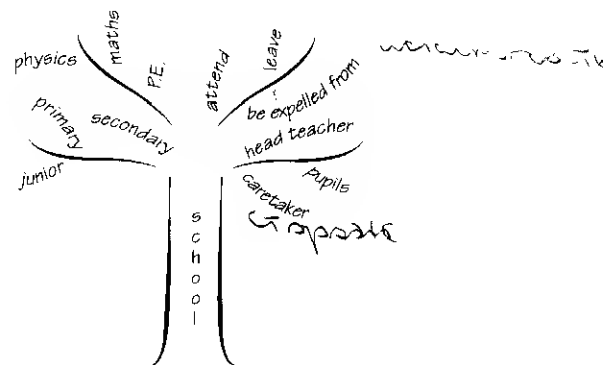 physics
maths
P.E.
attend
leave
be expelled from
primary
secondary
head teacher
junior
caretaker
pupils
school